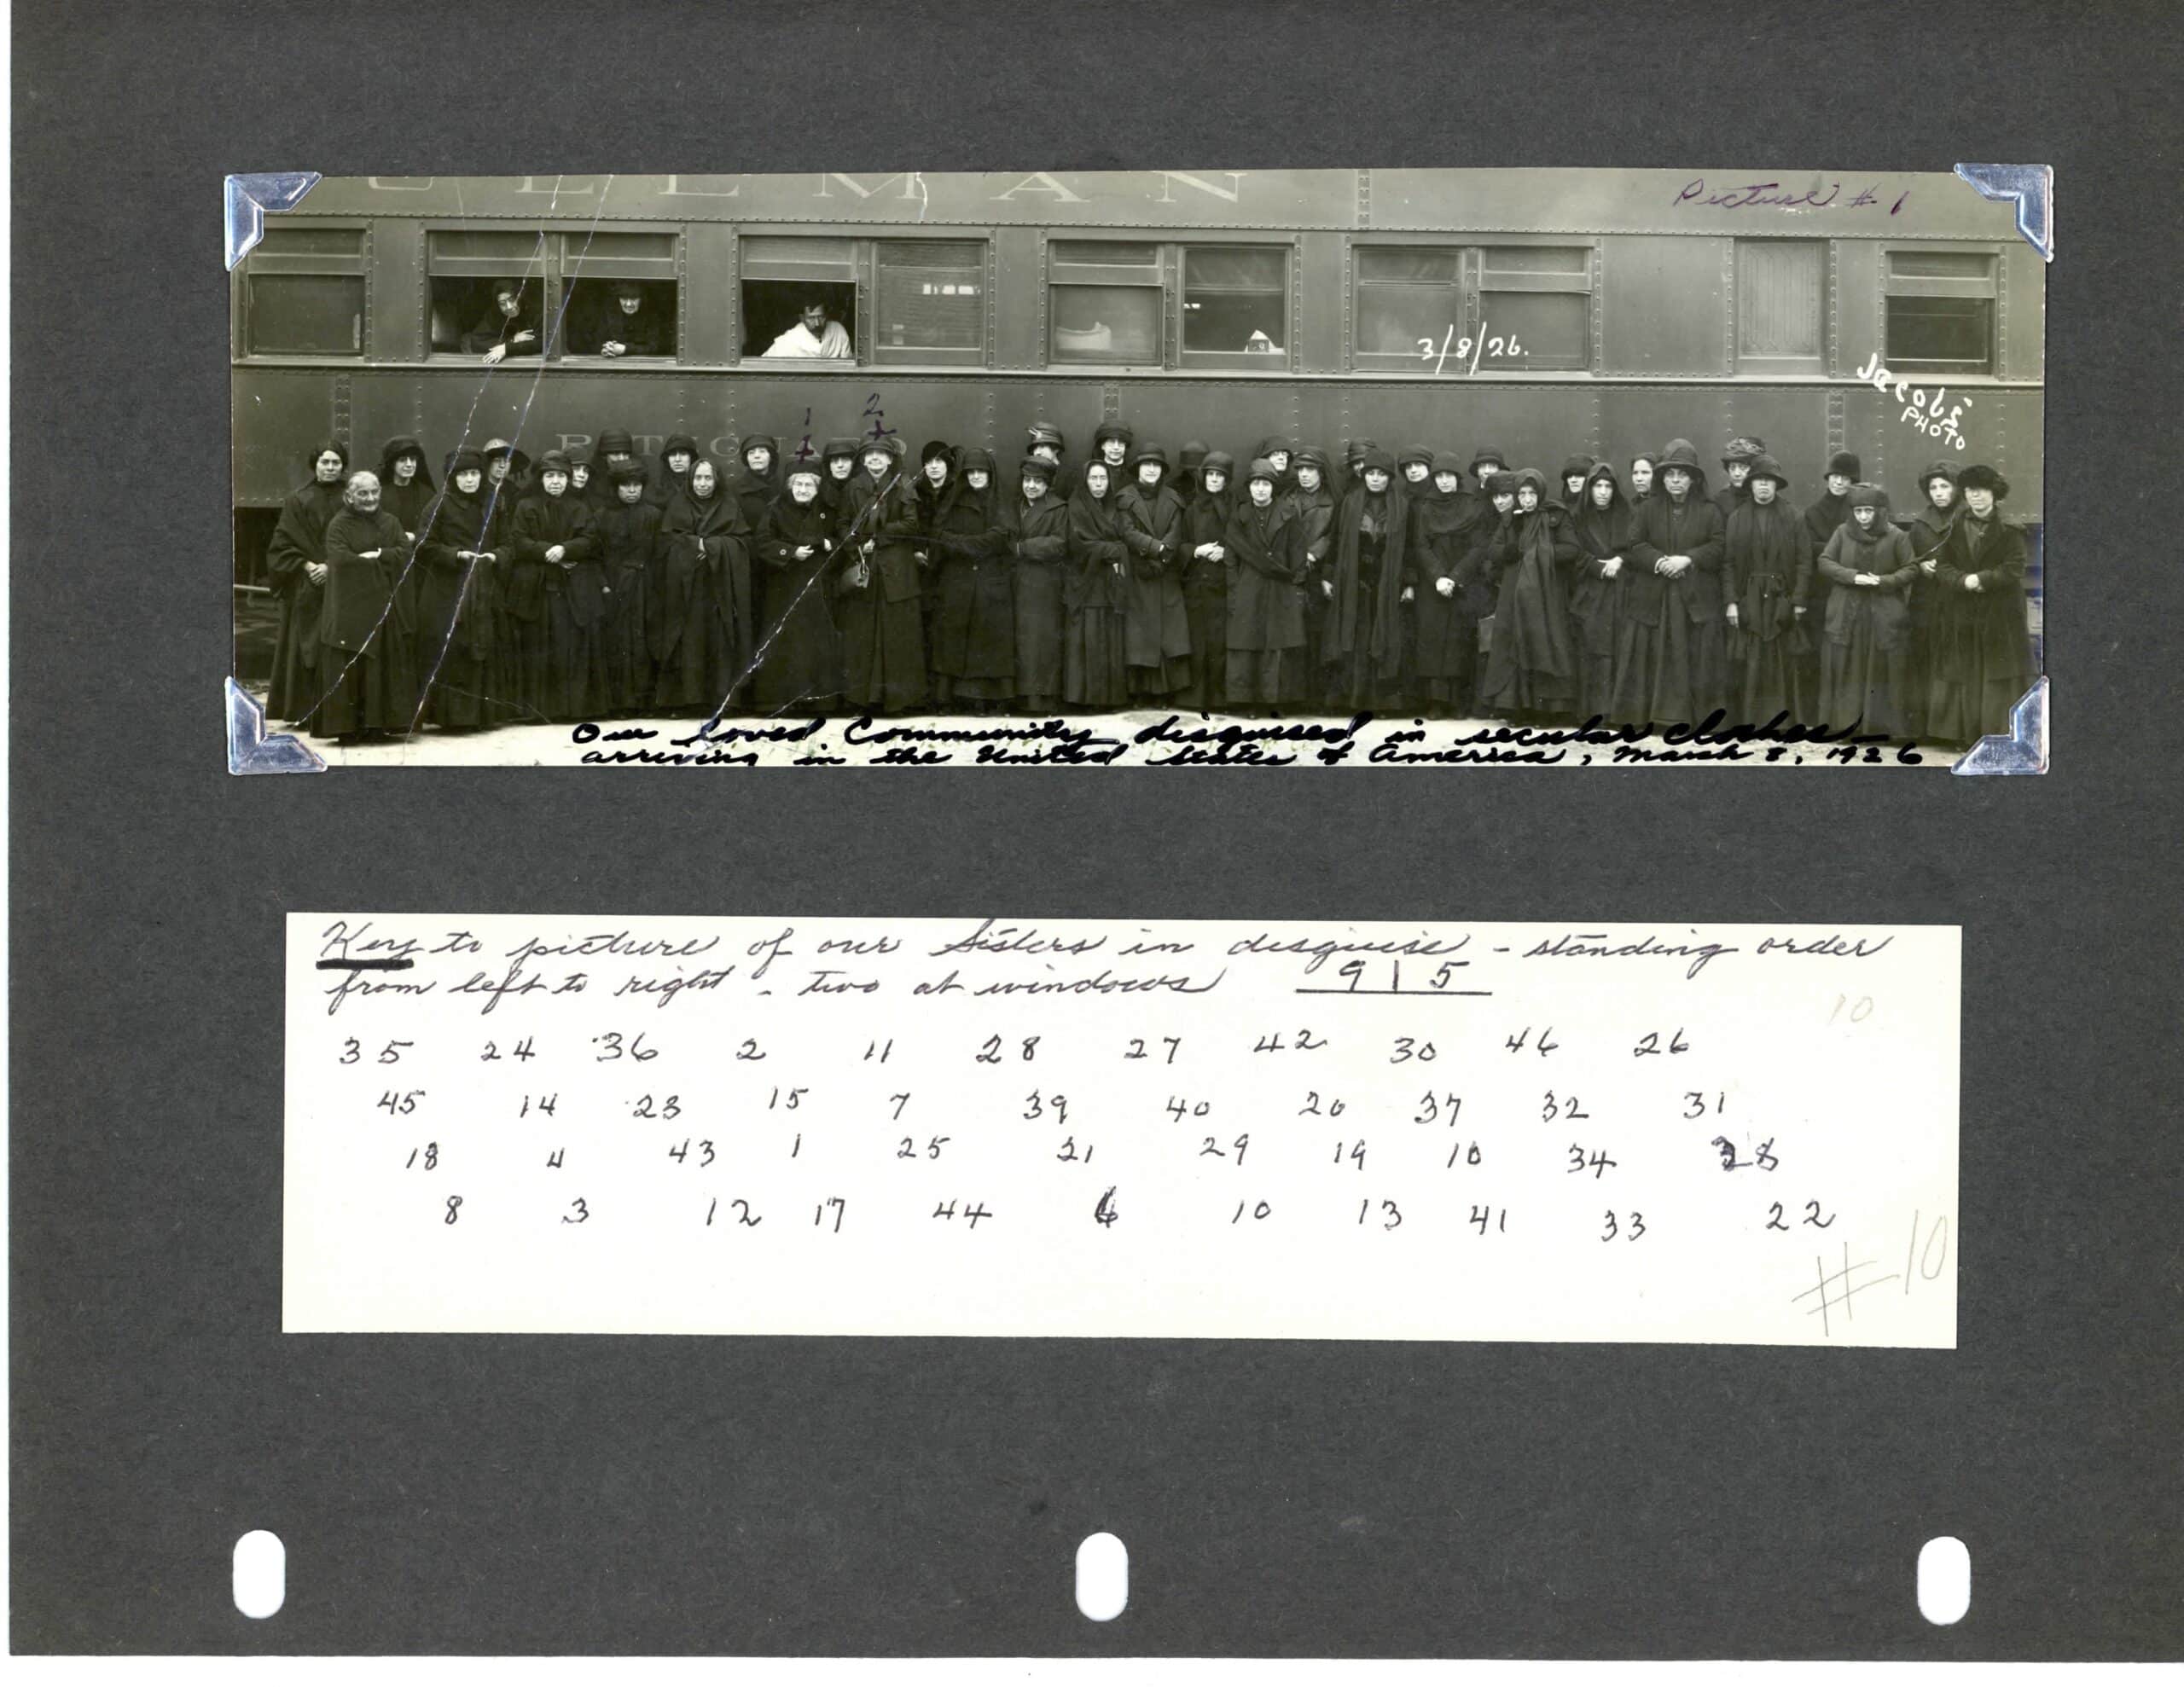 ULLMAN
Picture # 1
3/8/26.
Jacobs'
PHOTO
1 2
Our loved Community disguised in secular clothes—
arriving in the United States of America, March 8, 1926
Key to picture of our Sisters in disguise - standing order
from left to right - two at windows 9 | 5
10
35 24 36 2 11 28 27 42 30 46 26
45 14 23 15 7 39 40 20 37 32 31
18 4 43 1 25 21 29 19 16 34
8 3 12 17 44 6 10 13 41 33 22
# 10